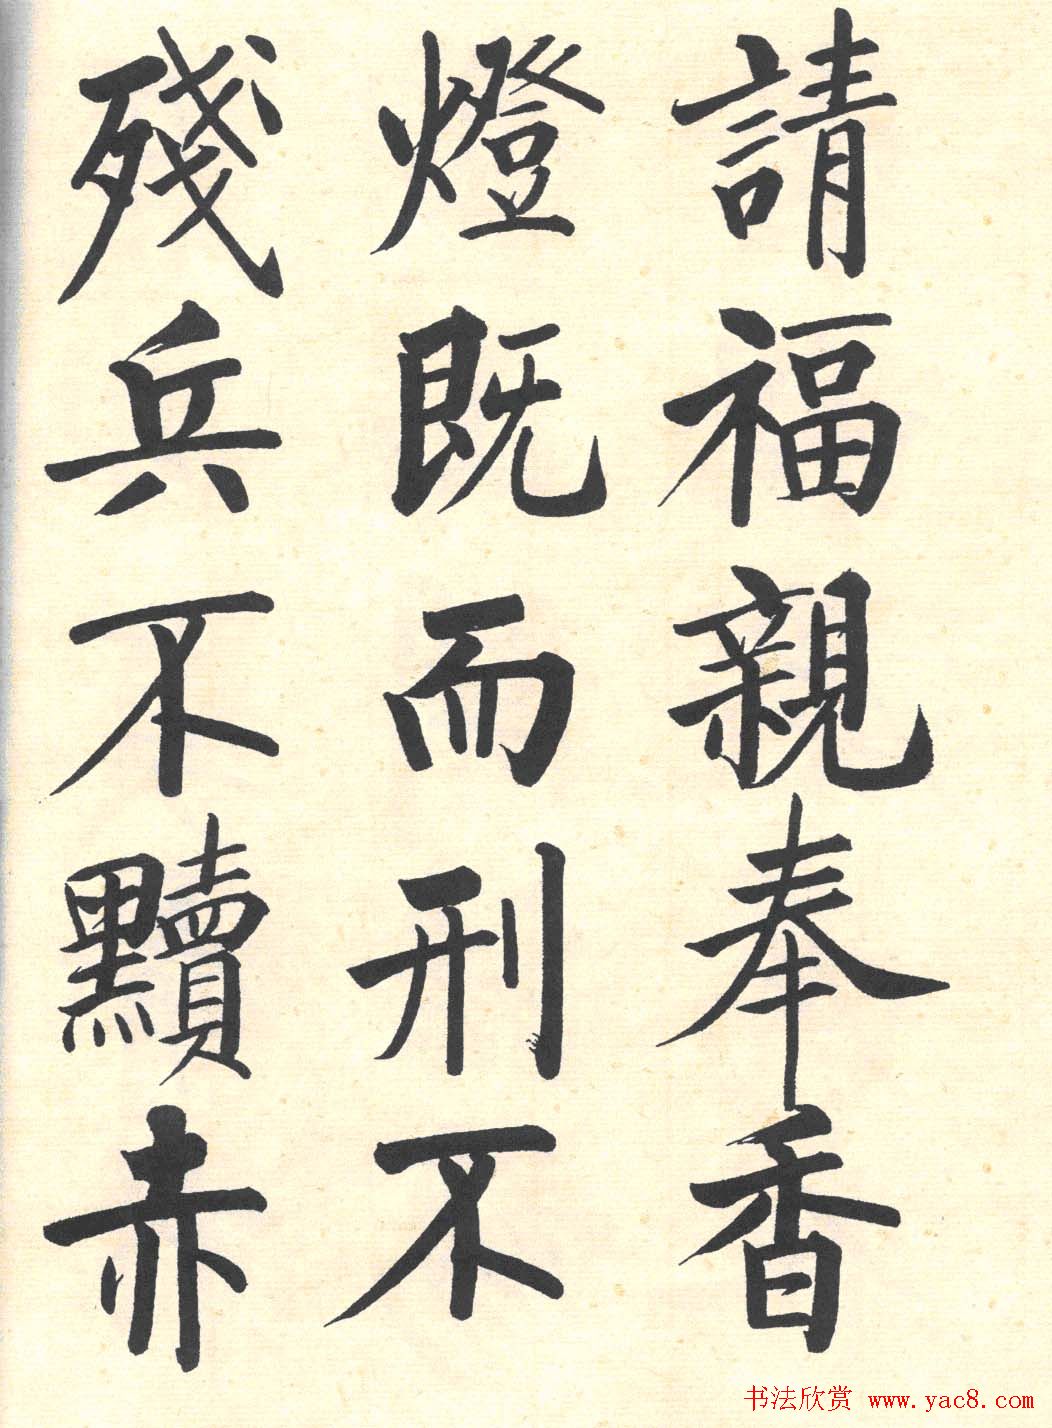 請福親奉香
燈既而刑不
殘兵不黷赤
书法欣赏 www.yac8.com